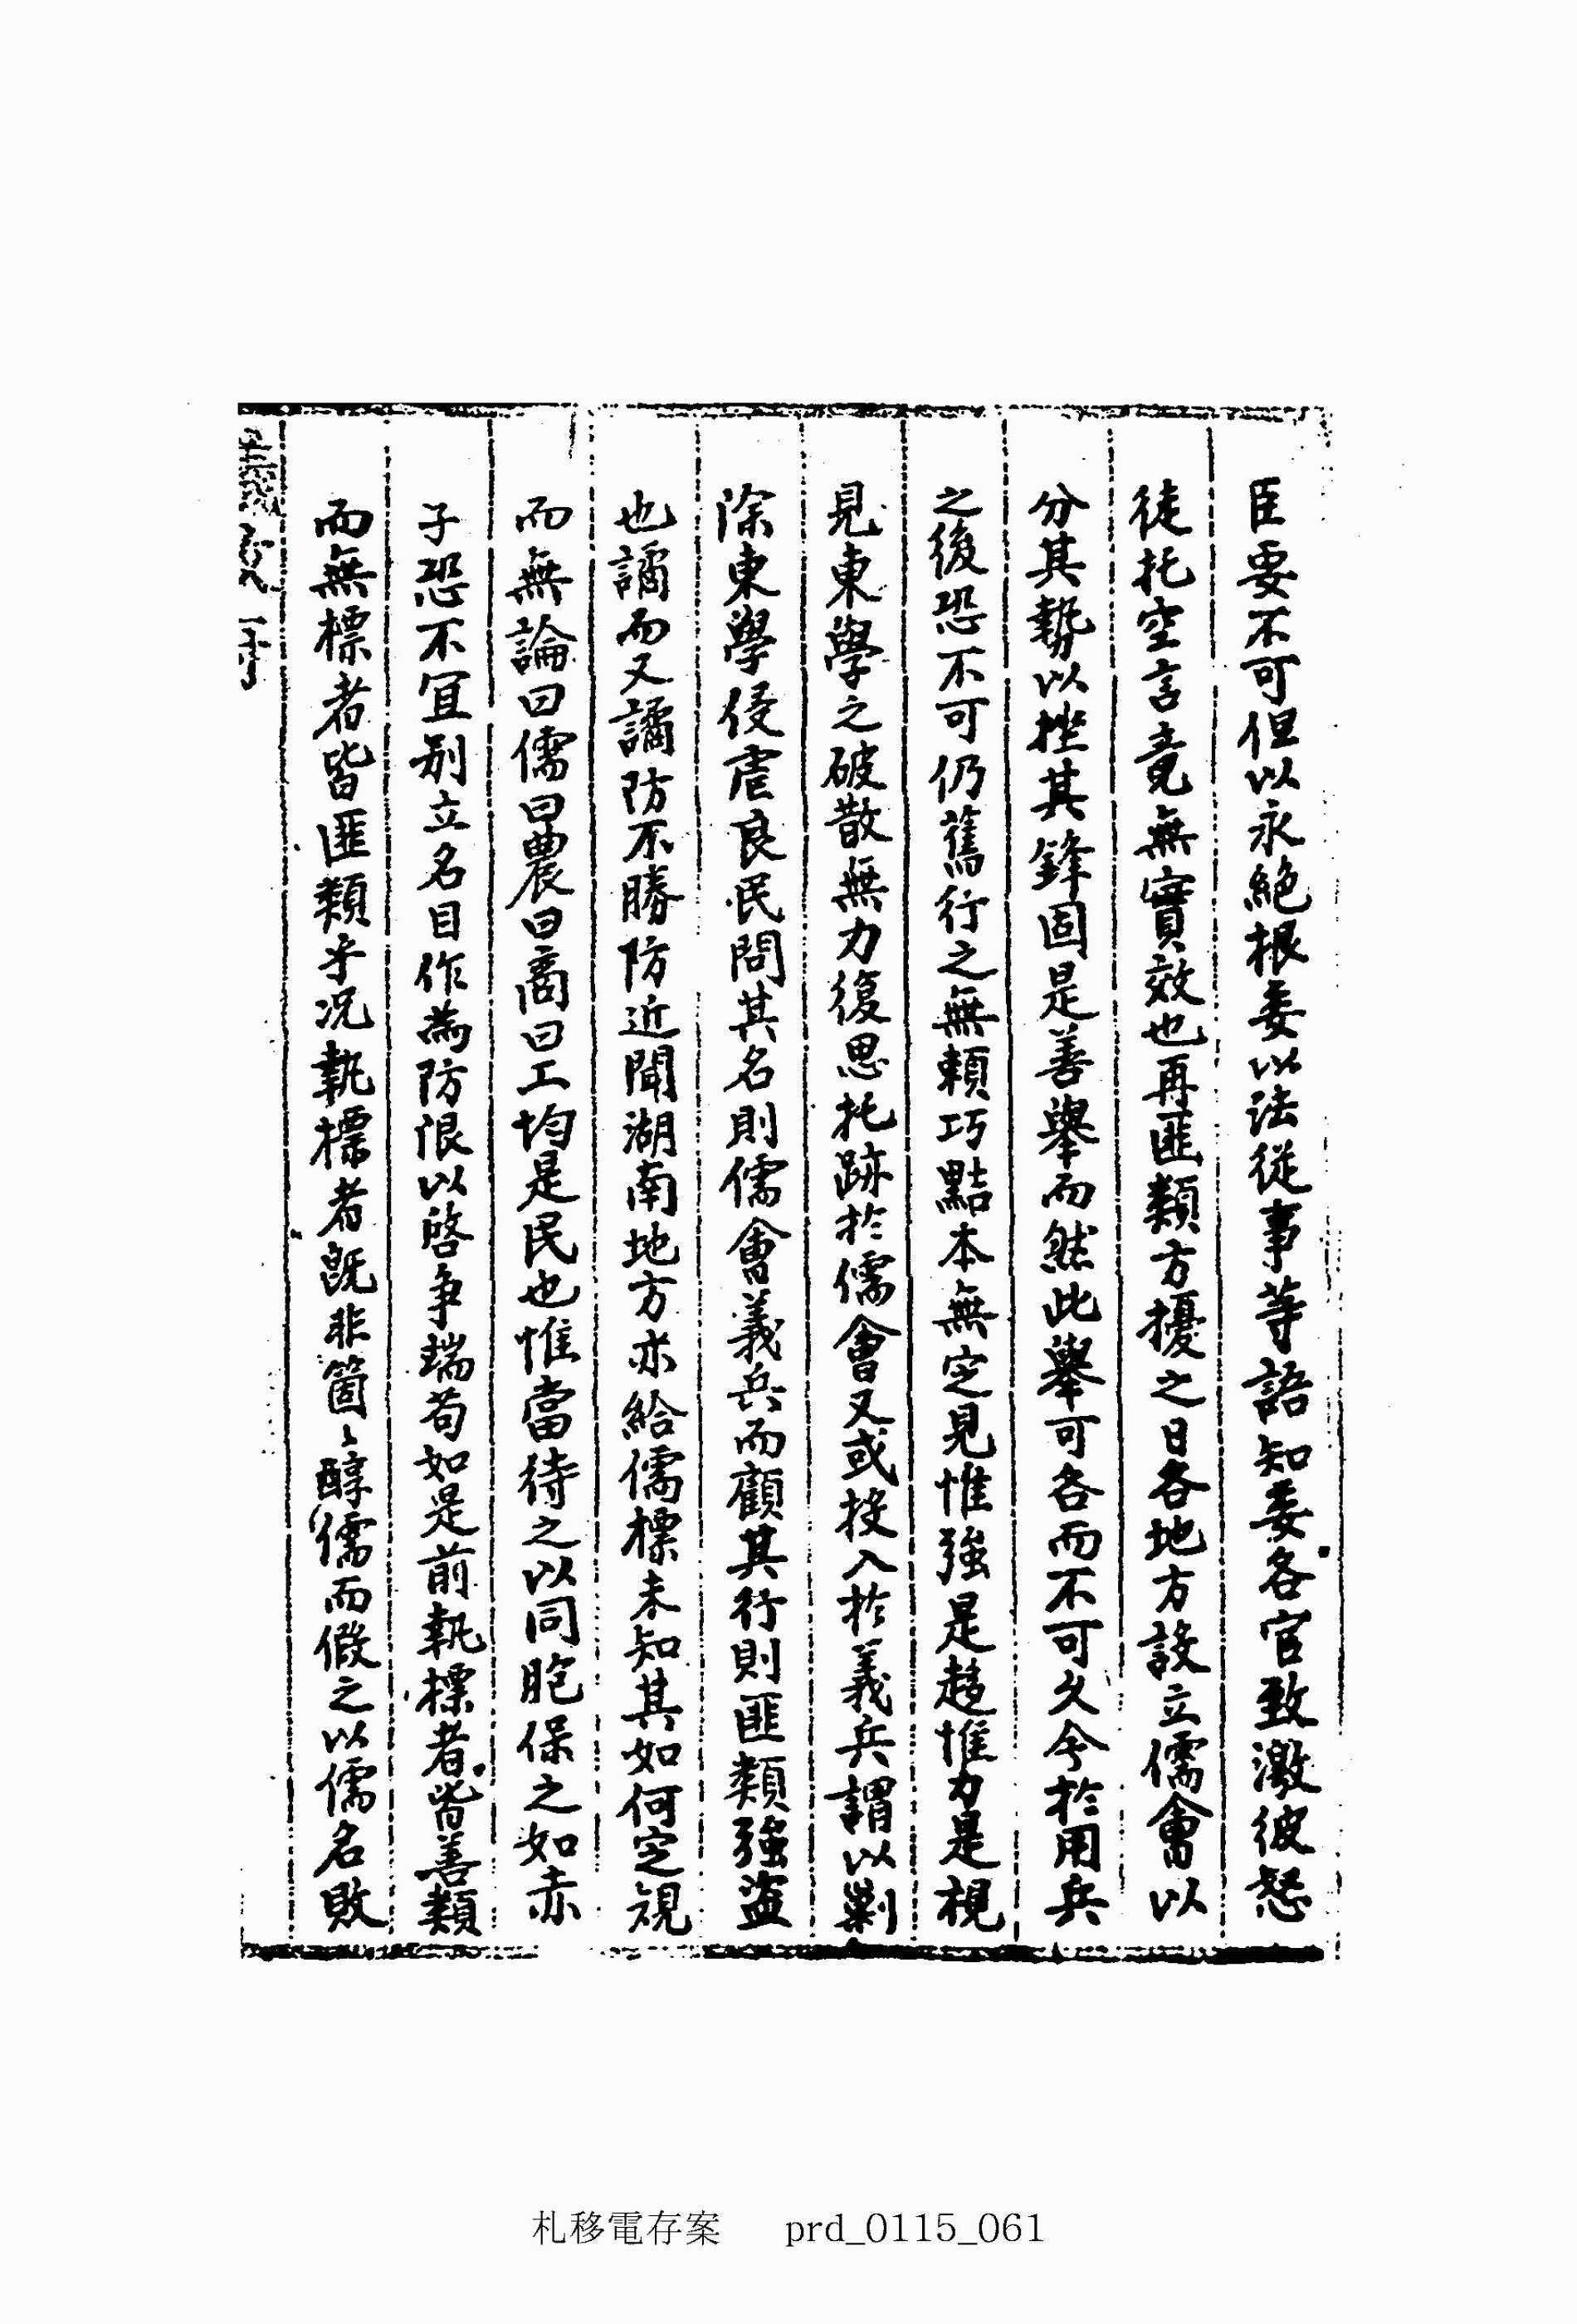 臣要不可但以永絕根委以法從事等語知委各官致激彼怒
徒托空言竟無實效也再匪類方擾之日各地方設立儒會以
分其勢以挫其鋒固是善舉而然此舉可各而不可久今於用兵
之後恐不可仍舊行之無賴巧黠本無定見惟強是趍惟力是視
見東學之破散無力復思托跡於儒會又或投入於義兵謂以剿
除東學侵虐良民問其名則儒會義兵而顧其行則匪類強盜
也譎而又譎防不勝防近聞湖南地方亦給儒標未知其如何定規
而無論曰儒曰農曰商曰工均是民也惟當待之以同胞保之如赤
子恐不宜別立名目作為防限以啓爭端苟如是前執標者皆善類
而無標者皆匪類乎況執標者旣非箇〻醇儒而假之以儒名敗
札移電存案 prd_0115_061